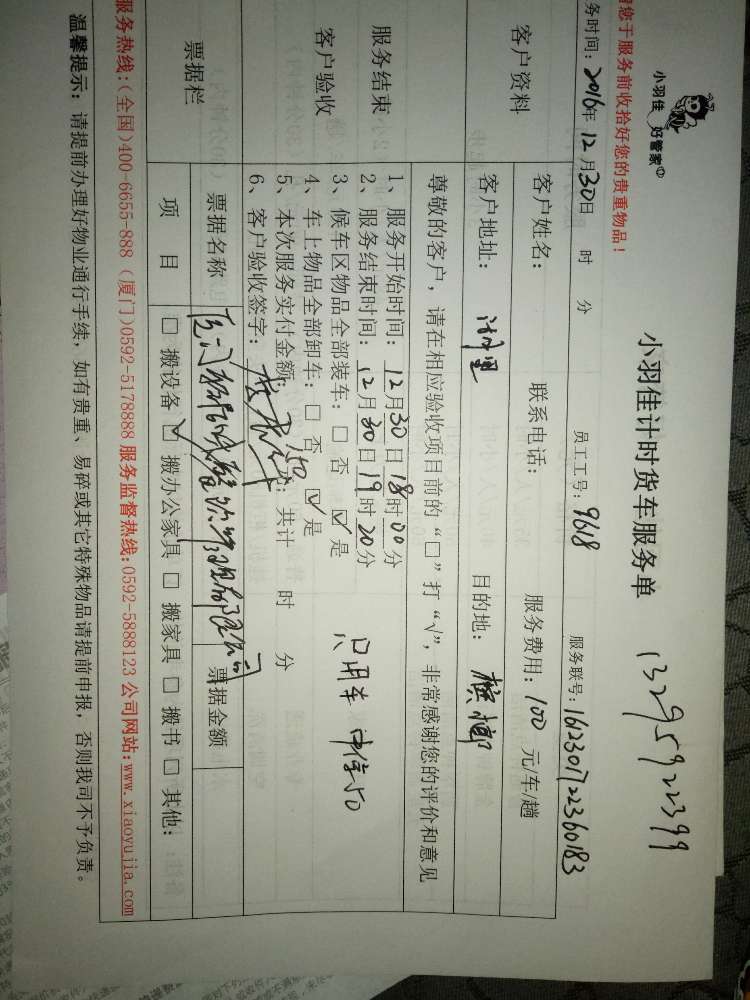 小羽佳 好管家
小羽佳计时货车服务单
13295922399
您于服务前收拾好您的贵重物品！
务时间：2016年12月30日 时 分 员工工号：9618 服务联号：162301722360183
客户资料
客户姓名： 联系电话： 服务费用：100 元/车/趟
客户地址： 目的地：
尊敬的客户，请在相应验收项目前的“□”打“√”，非常感谢您的评价和意见
服务结束
客户验收
1、服务开始时间：12月30日18时00分
2、服务结束时间：12月30日19时20分
3、候车区物品全部装车：□ 否 ☑ 是
4、车上物品全部卸车：□ 否 ☑ 是
5、本次服务实付金额：150元；共计 时 分
6、客户验收签字：
只用车
票据栏
票据名称
票据金额
项 目 □ 搬设备 ☑ 搬办公家具 □ 搬家具 □ 搬书 □ 其他：
服务热线：（全国）400-6655-888 （厦门）0592-5178888 服务监督热线：0592-5888123 公司网站：www.xiaoyujia.com
温馨提示：请提前办理好物业通行手续，如有贵重、易碎或其它特殊物品请提前申报，否则我司不予负责。